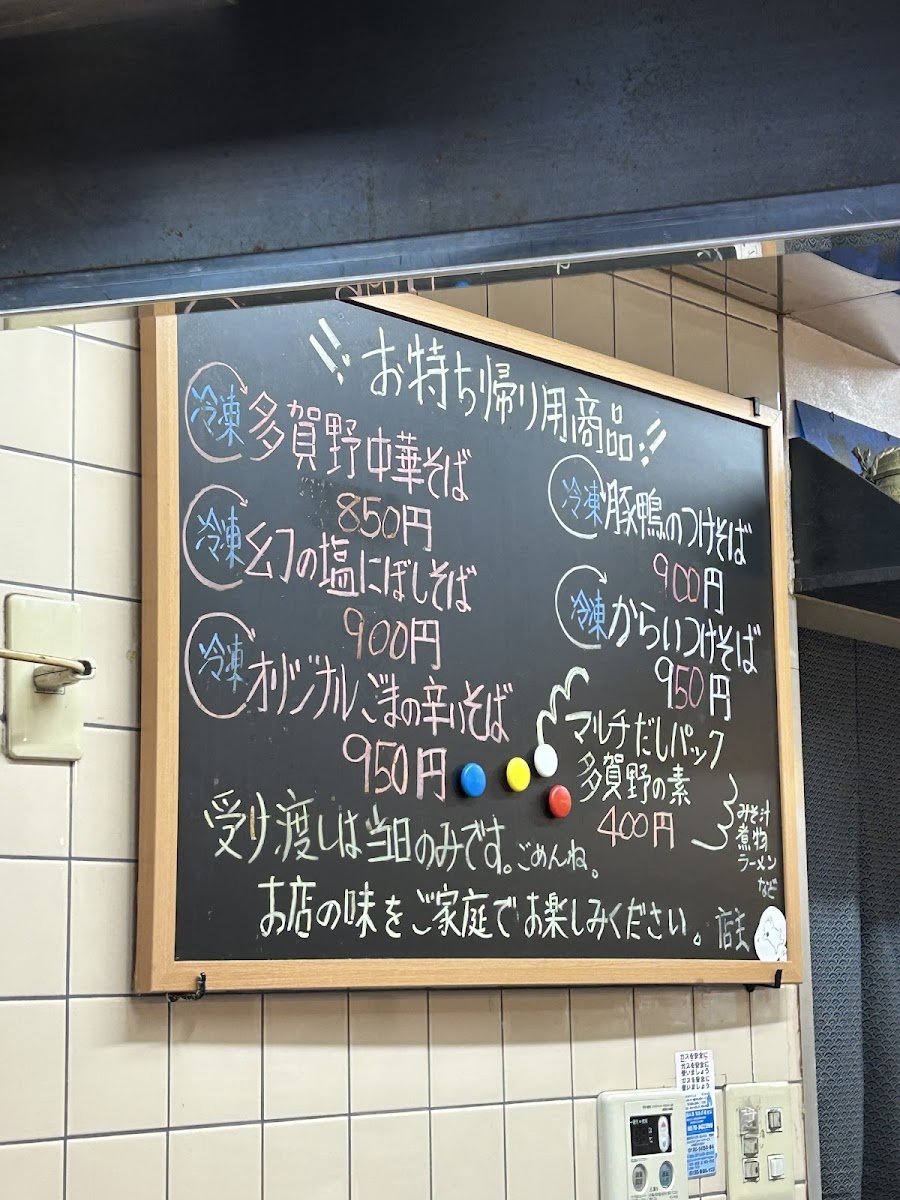 !! お持ち帰り用商品 !!
冷凍 多賀野中華そば
850円
冷凍 幻の塩にぼしそば
900円
冷凍 オリジナルごまの辛いそば
950円
冷凍 豚鴨のつけそば
900円
冷凍 からいつけそば
950円
マルチだしパック
多賀野の素
400円
みそ汁
煮物
ラーメン
など
受け渡しは当日のみです。ごめんね。
お店の味をご家庭でお楽しみください。店主